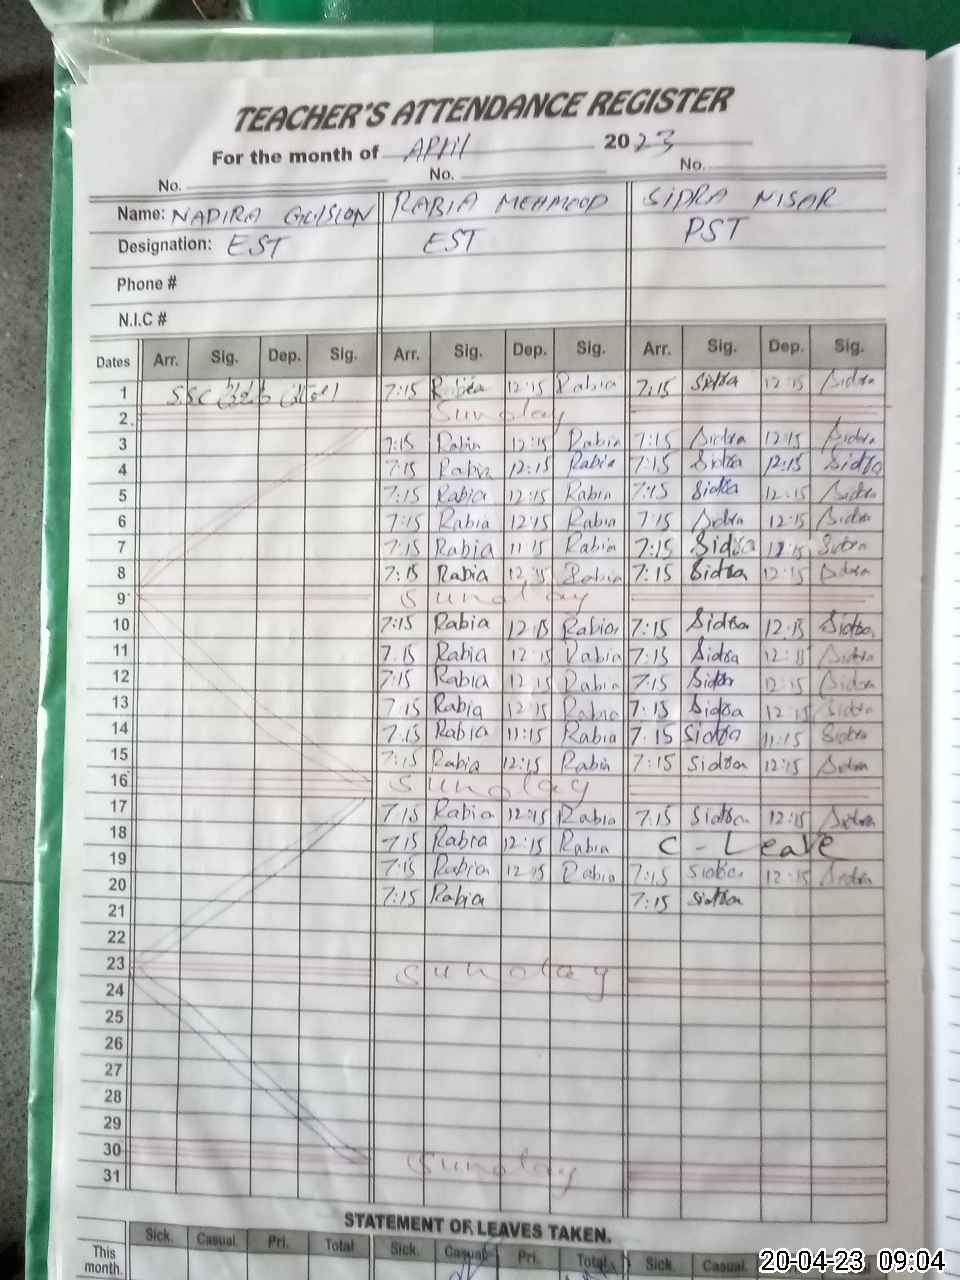 TEACHER'S ATTENDANCE REGISTER
For the month of April 2023
No. No. No.
Name: NADIRA RABIA MEHMOOD SIDRA NISAR
Designation: EST EST PST
Phone #
N.I.C #
Dates Arr. Sig. Dep. Sig. Arr. Sig. Dep. Sig. Arr. Sig. Dep. Sig.
1 SSC 7:15 Rabia 12:15 Rabia 7:15 Sidra 12:15 Sidra
2 Sunday
3 7:15 Rabia 12:15 Rabia 7:15 Sidra 12:15 Sidra
4 7:15 Rabia 12:15 Rabia 7:15 Sidra 12:15 Sidra
5 7:15 Rabia 12:15 Rabia 7:15 Sidra 12:15 Sidra
6 7:15 Rabia 12:15 Rabia 7:15 Sidra 12:15 Sidra
7 7:15 Rabia 11:15 Rabia 7:15 Sidra Sidra
8 7:15 Rabia 12:15 Rabia 7:15 Sidra 12:15 Sidra
9 Sunday
10 7:15 Rabia 12:15 Rabia 7:15 Sidra 12:15 Sidra
11 7:15 Rabia 12:15 Rabia 7:15 Sidra 12:15 Sidra
12 7:15 Rabia 12:15 Rabia 7:15 Sidra 12:15 Sidra
13 7:15 Rabia 12:15 Rabia 7:15 Sidra 12:15 Sidra
14 7:15 Rabia 11:15 Rabia 7:15 Sidra 11:15 Sidra
15 7:15 Rabia 12:15 Rabia 7:15 Sidra 12:15 Sidra
16 Sunday
17 7:15 Rabia 12:15 Rabia 7:15 Sidra 12:15 Sidra
18 7:15 Rabia 12:15 Rabia C - Leave
19 7:15 Rabia 12:15 Rabia 7:15 Sidra 12:15 Sidra
20 7:15 Rabia 7:15 Sidra
21
22
23 Sunday
24
25
26
27
28
29
30 Sunday
31
STATEMENT OF LEAVES TAKEN.
Sick. Casual. Pri. Total Sick. Casual Pri. Total Sick Casual
This month.
20-04-23 09:04